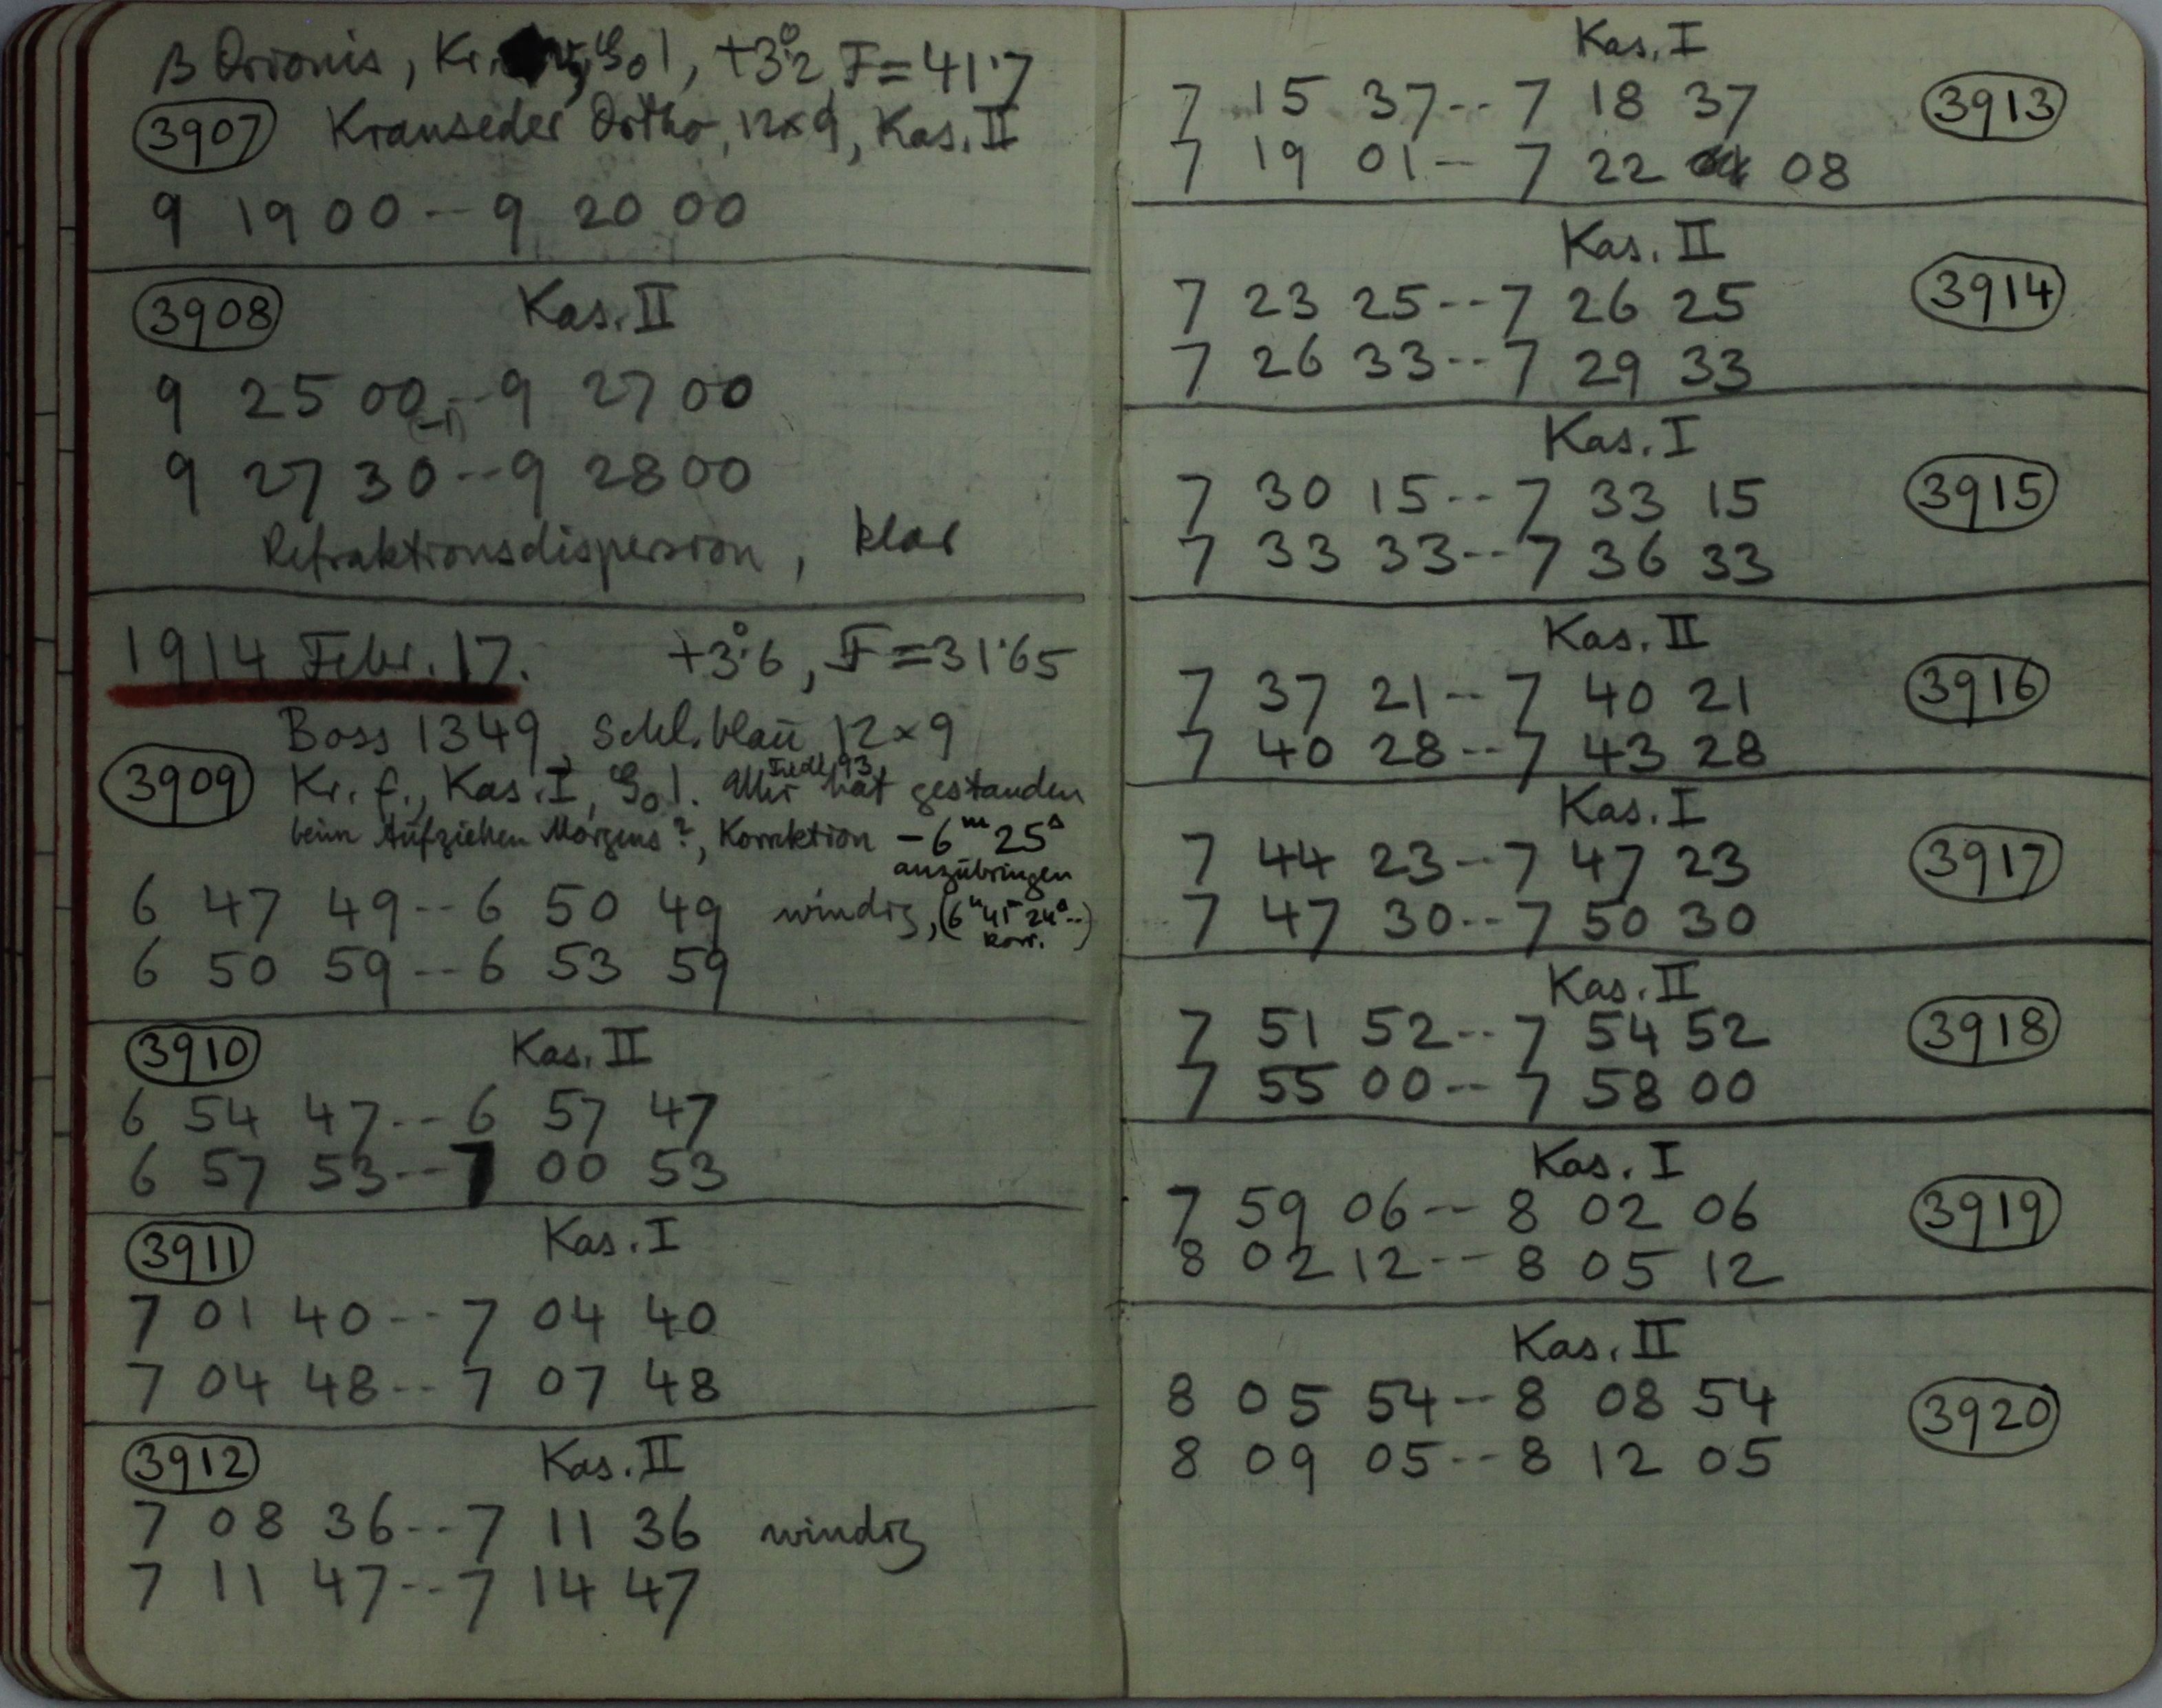 β Orionis, Kr. 901, +3°.2, F=41.7
3907 Kranseder Ortho, 12×9, Kas. II
9 19 00--9 20 00
3908 Kas. II
9 25 00--9 27 00
9 27 30--9 28 00
Refraktionsdispersion, klar
1914 Febr. 17. +3°.6, F=31.65
Boss 1349, Schl. blau 12×9
3909 Kr. f., Kas. I, Uhr hat gestanden
beim Aufziehen Morgens?, Korrektion -6m 25s
anzubringen
6 47 49--6 50 49 windig, (6h 41m 24s--)
korr.
6 50 59--6 53 59
3910 Kas. II
6 54 47--6 57 47
6 57 53--7 00 53
3911 Kas. I
7 01 40--7 04 40
7 04 48--7 07 48
3912 Kas. II
7 08 36--7 11 36 windig
7 11 47--7 14 47
Kas. I
7 15 37--7 18 37 3913
7 19 01--7 22 08
Kas. II
7 23 25--7 26 25 3914
7 26 33--7 29 33
Kas. I
7 30 15--7 33 15 3915
7 33 33--7 36 33
Kas. II
7 37 21--7 40 21 3916
7 40 28--7 43 28
Kas. I
7 44 23--7 47 23 3917
7 47 30--7 50 30
Kas. II
7 51 52--7 54 52 3918
7 55 00--7 58 00
Kas. I
7 59 06--8 02 06 3919
8 02 12--8 05 12
Kas. II
8 05 54--8 08 54 3920
8 09 05--8 12 05